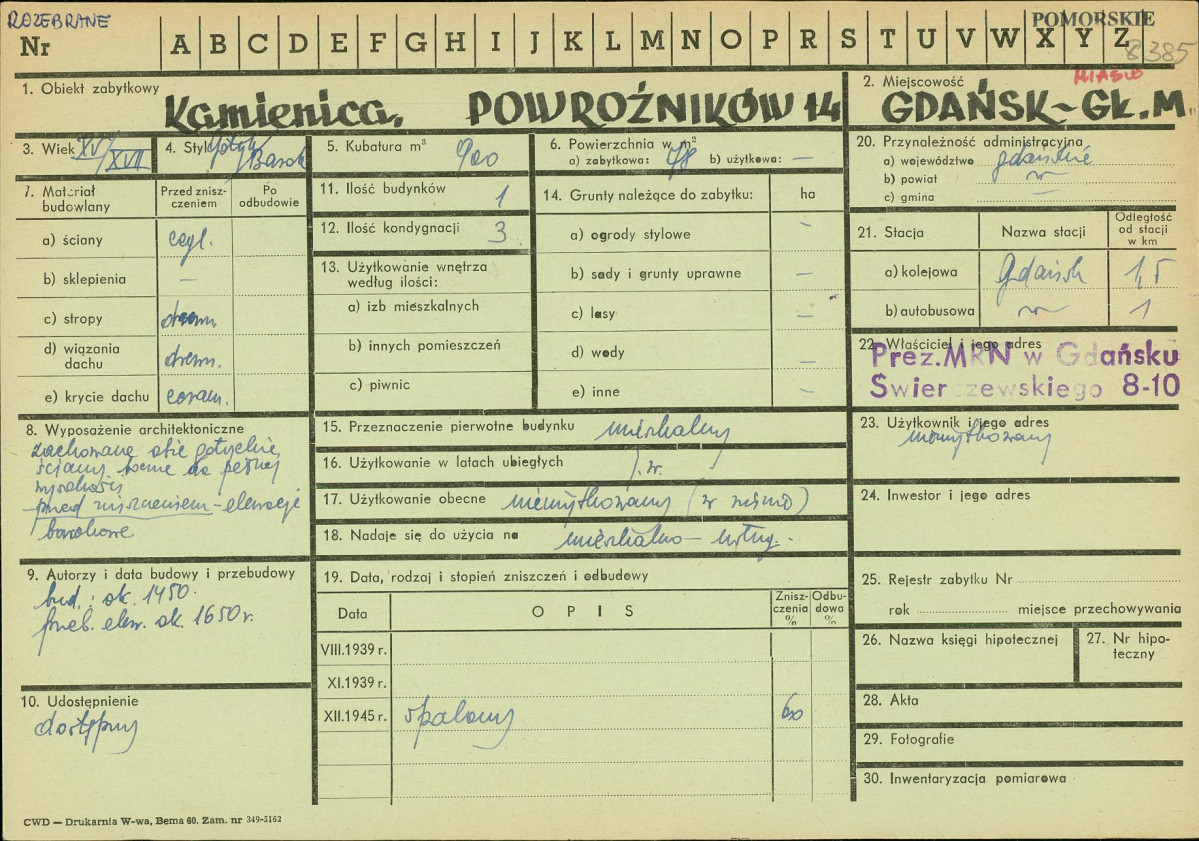 ROZEBRANE
POMORSKIE
Nr A B C D E F G H I J K L M N O P R S T U V W X Y Z
8385
MIASTO
1. Obiekt zabytkowy
Kamienica. POWROŹNIKÓW 14
2. Miejscowość
GDAŃSK-GŁ.M.
3. Wiek XV/XVII
4. Styl Gotyk/Barok
5. Kubatura m³ 900
6. Powierzchnia w m²
a) zabytkowa: 78 b) użytkowa: —
20. Przynależność administracyjna
a) województwo gdańskie
b) powiat "
c) gmina —
7. Materiał budowlany
Przed zniszczeniem
Po odbudowie
a) ściany cegl.
b) sklepienia —
c) stropy drewn.
d) wiązania dachu drewn.
e) krycie dachu ceram.
11. Ilość budynków 1
12. Ilość kondygnacji 3
13. Użytkowanie wnętrza
według ilości:
a) izb mieszkalnych
b) innych pomieszczeń
c) piwnic
14. Grunty należące do zabytku: ha
a) ogrody stylowe —
b) sady i grunty uprawne —
c) lasy —
d) wody —
e) inne —
21. Stacja Nazwa stacji Odległość od stacji w km
a) kolejowa Gdańsk 1,5
b) autobusowa " 1
22. Właściciel i jego adres
Prez.MRN w Gdańsku
Świerczewskiego 8-10
8. Wyposażenie architektoniczne
zachowane obie gotyckie
ściany boczne do pełnej
wysokości
przed zniszczeniem - elewacje
barokowe
15. Przeznaczenie pierwotne budynku mieszkalny
16. Użytkowanie w latach ubiegłych j.w.
17. Użytkowanie obecne nieużytkowany (w ruinie)
18. Nadaje się do użycia na mieszkalno - usług.
23. Użytkownik i jego adres
nieużytkowany
24. Inwestor i jego adres
9. Autorzy i data budowy i przebudowy
bud.: ok. 1450.
przeb. elew. ok. 1650 r.
10. Udostępnienie
dostępny
19. Data, rodzaj i stopień zniszczeń i odbudowy
Data OPIS Zniszczenia % Odbudowa %
VIII.1939 r.
XI.1939 r.
XII.1945 r. spalony 60
25. Rejestr zabytku Nr
rok miejsce przechowywania
26. Nazwa księgi hipotecznej
27. Nr hipoteczny
28. Akta
29. Fotografie
30. Inwentaryzacja pomiarowa
CWD — Drukarnia W-wa, Bema 60. Zam. nr 349-5162